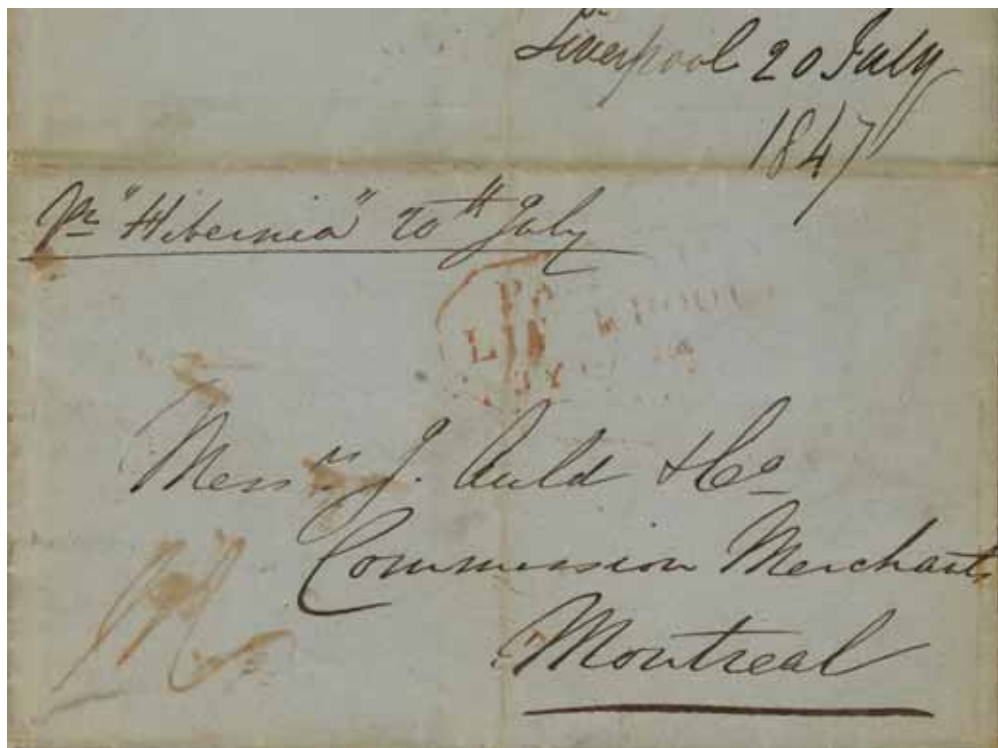 Liverpool 20 July
1847
pr "Hibernia" 20th July
Messrs J. Auld & Co
Commission Merchants
Montreal